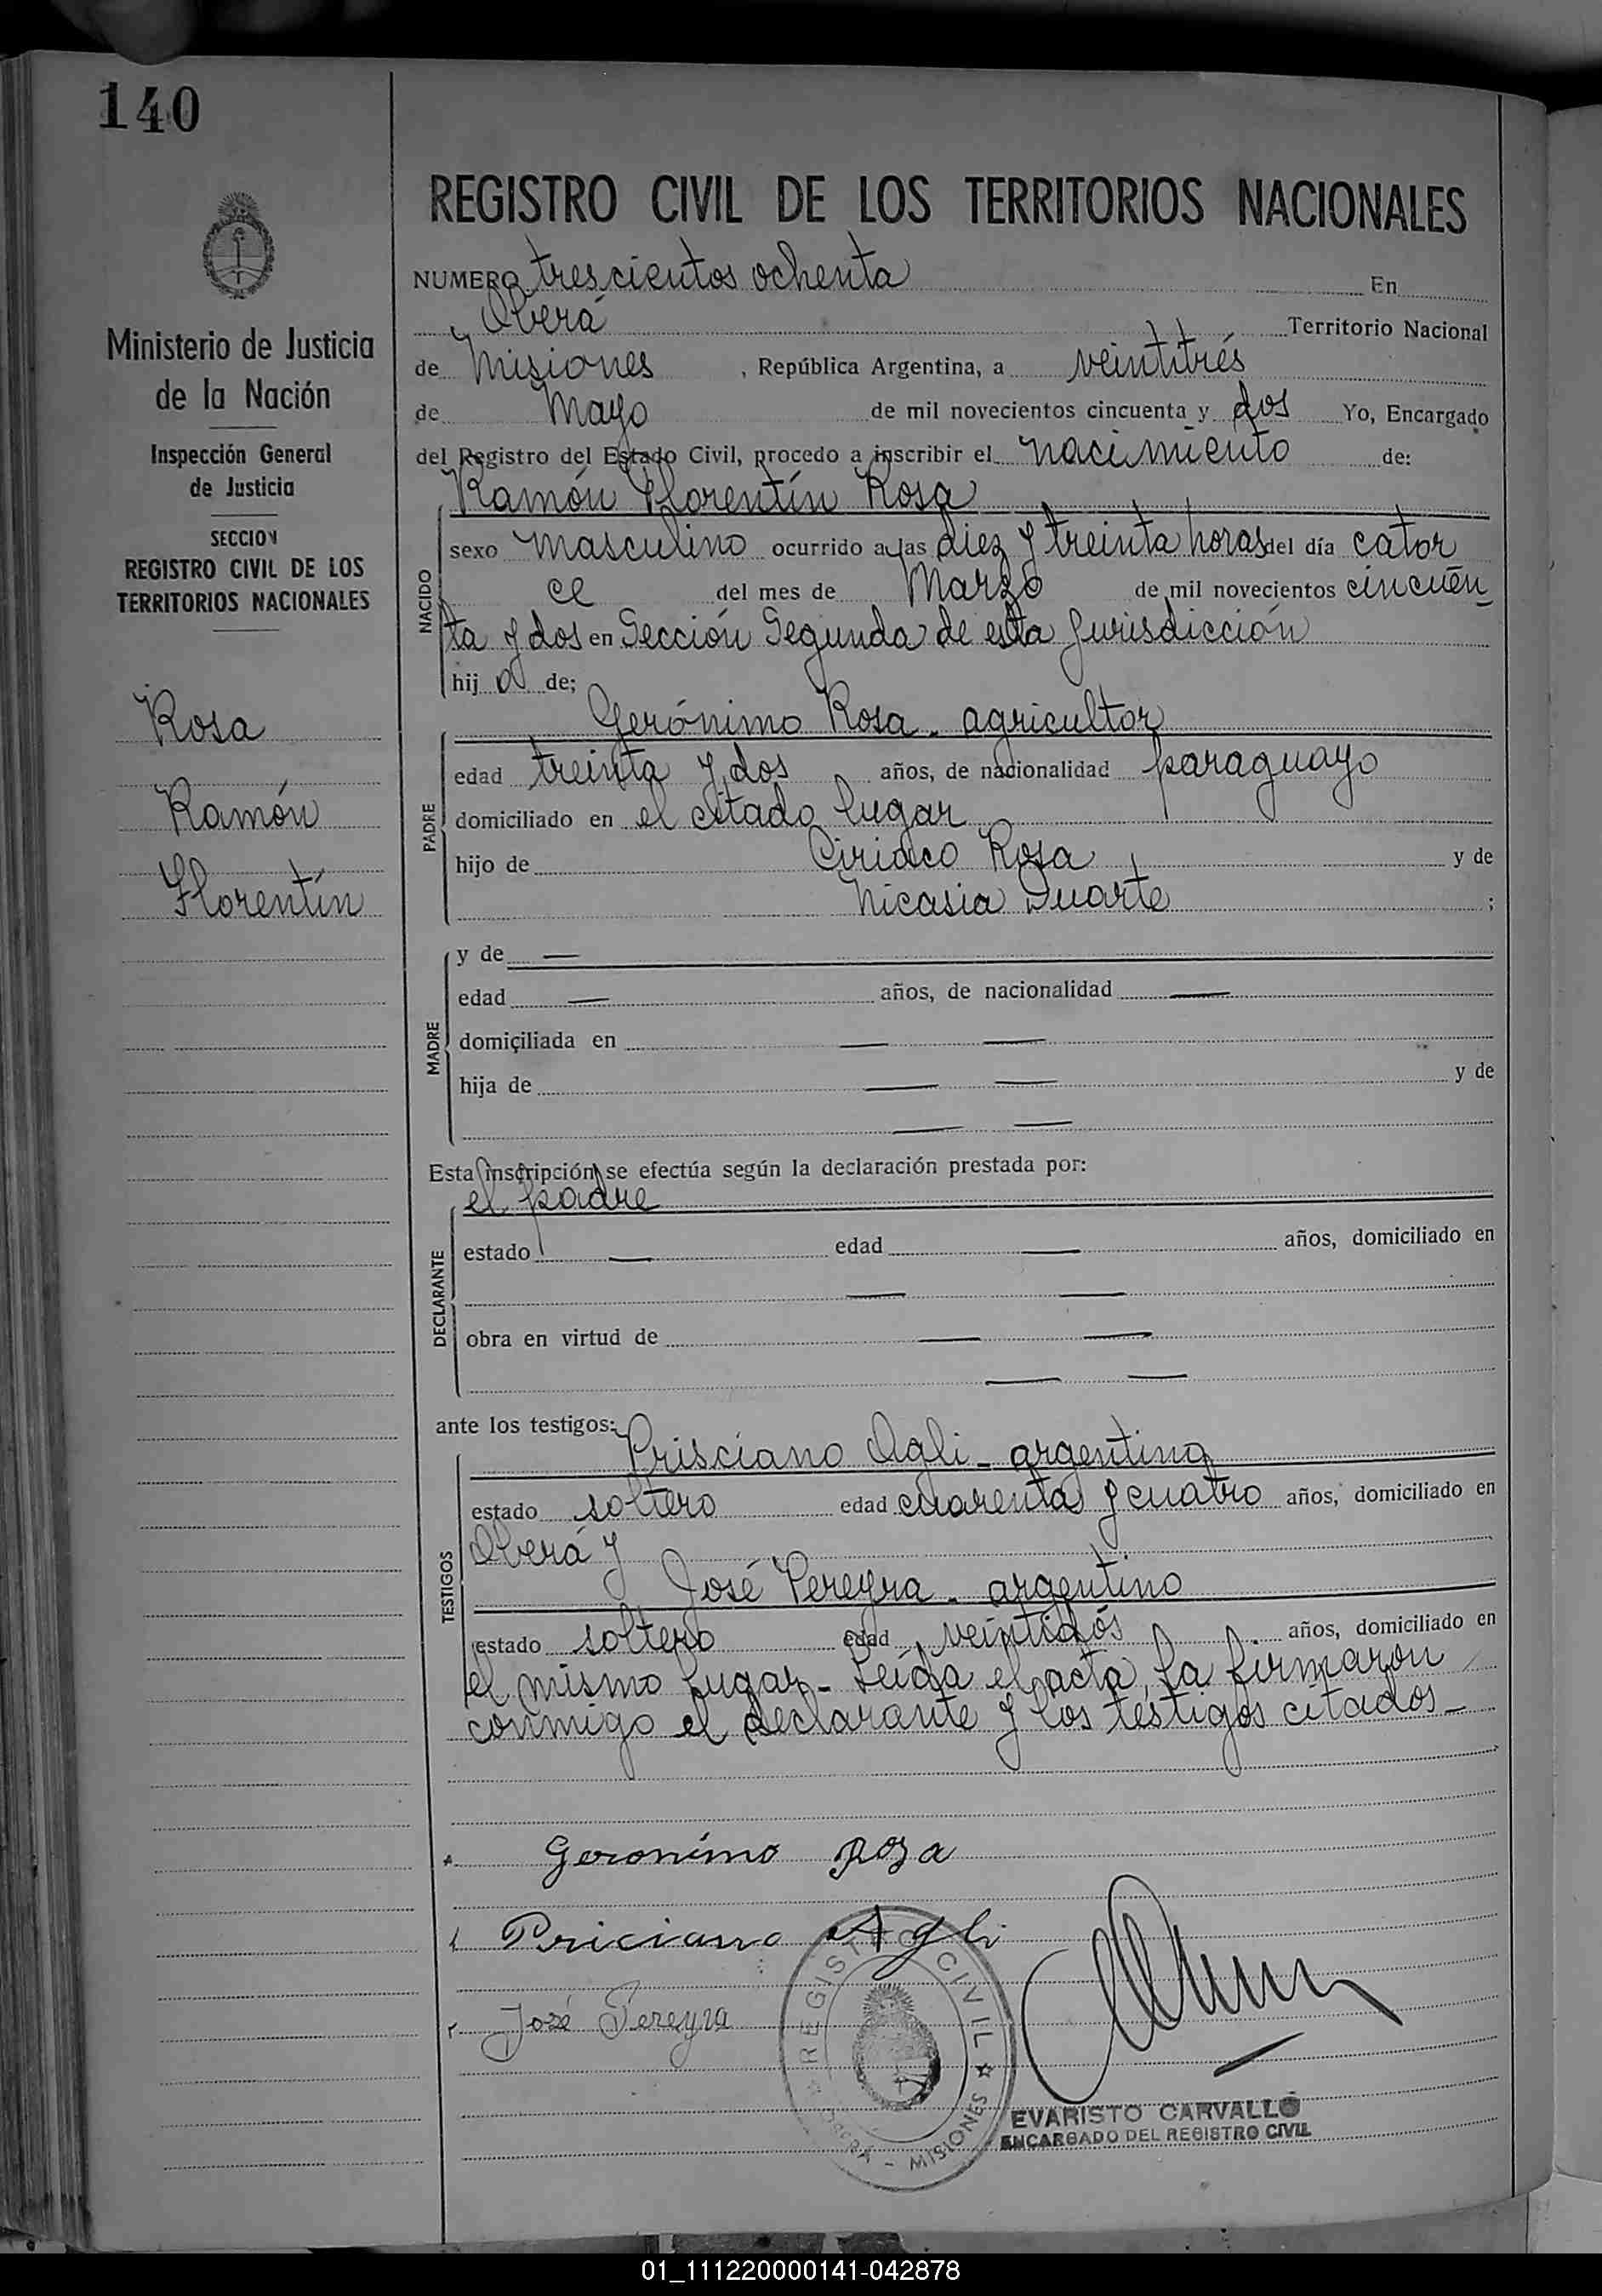 140
REGISTRO CIVIL DE LOS TERRITORIOS NACIONALES
Ministerio de Justicia
de la Nación
Inspección General
de Justicia
SECCION
REGISTRO CIVIL DE LOS
TERRITORIOS NACIONALES
Rosa
Ramón
Florentín
NUMERO trescientos ochenta En
Oberá Territorio Nacional
de Misiones , República Argentina, a veintitrés
de Mayo de mil novecientos cincuenta y dos Yo, Encargado
del Registro del Estado Civil, procedo a inscribir el nacimiento de:
Ramón Florentín Rosa
NACIDO
sexo masculino ocurrido a las diez y treinta horas del día cator
ce del mes de Marzo de mil novecientos cincuen
ta y dos en Sección Segunda de esta jurisdicción
hij o de;
PADRE
Gerónimo Rosa - agricultor
edad treinta y dos años, de nacionalidad paraguayo
domiciliado en el citado lugar
hijo de Ciriaco Rosa y de
Nicasia Duarte ;
MADRE
y de —
edad — años, de nacionalidad —
domiciliada en — —
hija de — — y de
— —
Esta inscripción se efectúa según la declaración prestada por:
el padre
DECLARANTE
estado — edad — años, domiciliado en
— —
obra en virtud de — —
— —
ante los testigos:
TESTIGOS
Prisciano Agli - argentino
estado soltero edad cuarenta y cuatro años, domiciliado en
Oberá y
José Pereyra - argentino
estado soltero edad veintidós años, domiciliado en
el mismo lugar - Leída el acta, la firmaron
conmigo el declarante y los testigos citados -
Geronimo Rosa
Priciano Agli
José Pereyra
REGISTRO CIVIL
OBERÁ - MISIONES
EVARISTO CARVALLO
ENCARGADO DEL REGISTRO CIVIL
01_111220000141-042878